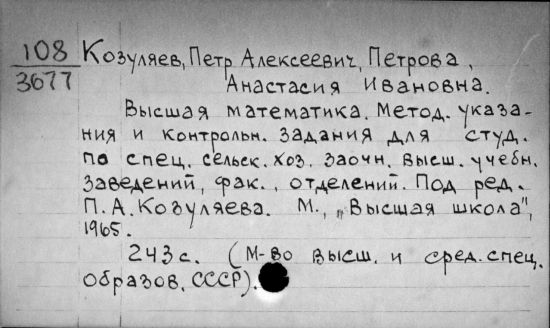 108
3677
Козуляев, Петр Алексеевич, Петрова,
Анастасия Ивановна.
Высшая математика. Метод. указа-
ния и контрольн. задания для студ.
по спец. сельск. хоз. заочн. высш. учебн.
заведений, фак., отделений. Под ред.
П. А. Козуляева. М., „Высшая школа",
1965.
243 с. (М-во высш. и сред. спец.
образов. СССР).